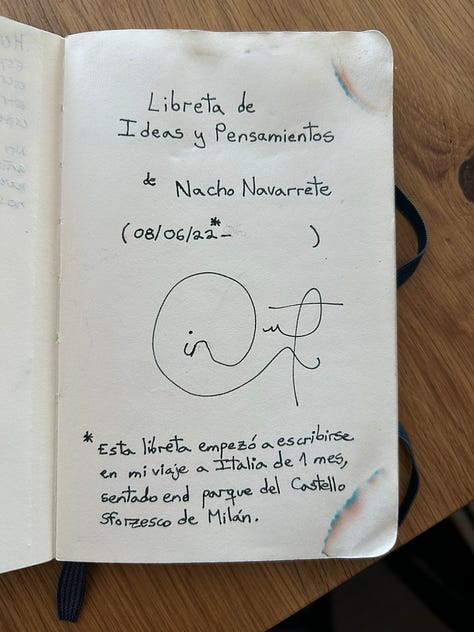 Libreta de
Ideas y Pensamientos
de Nacho Navarrete
(08/06/22*- )
in
* Esta libreta empezó a escribirse
en mi viaje a Italia de 1 mes,
sentado end parque del Castello
Sforzesco de Milán.